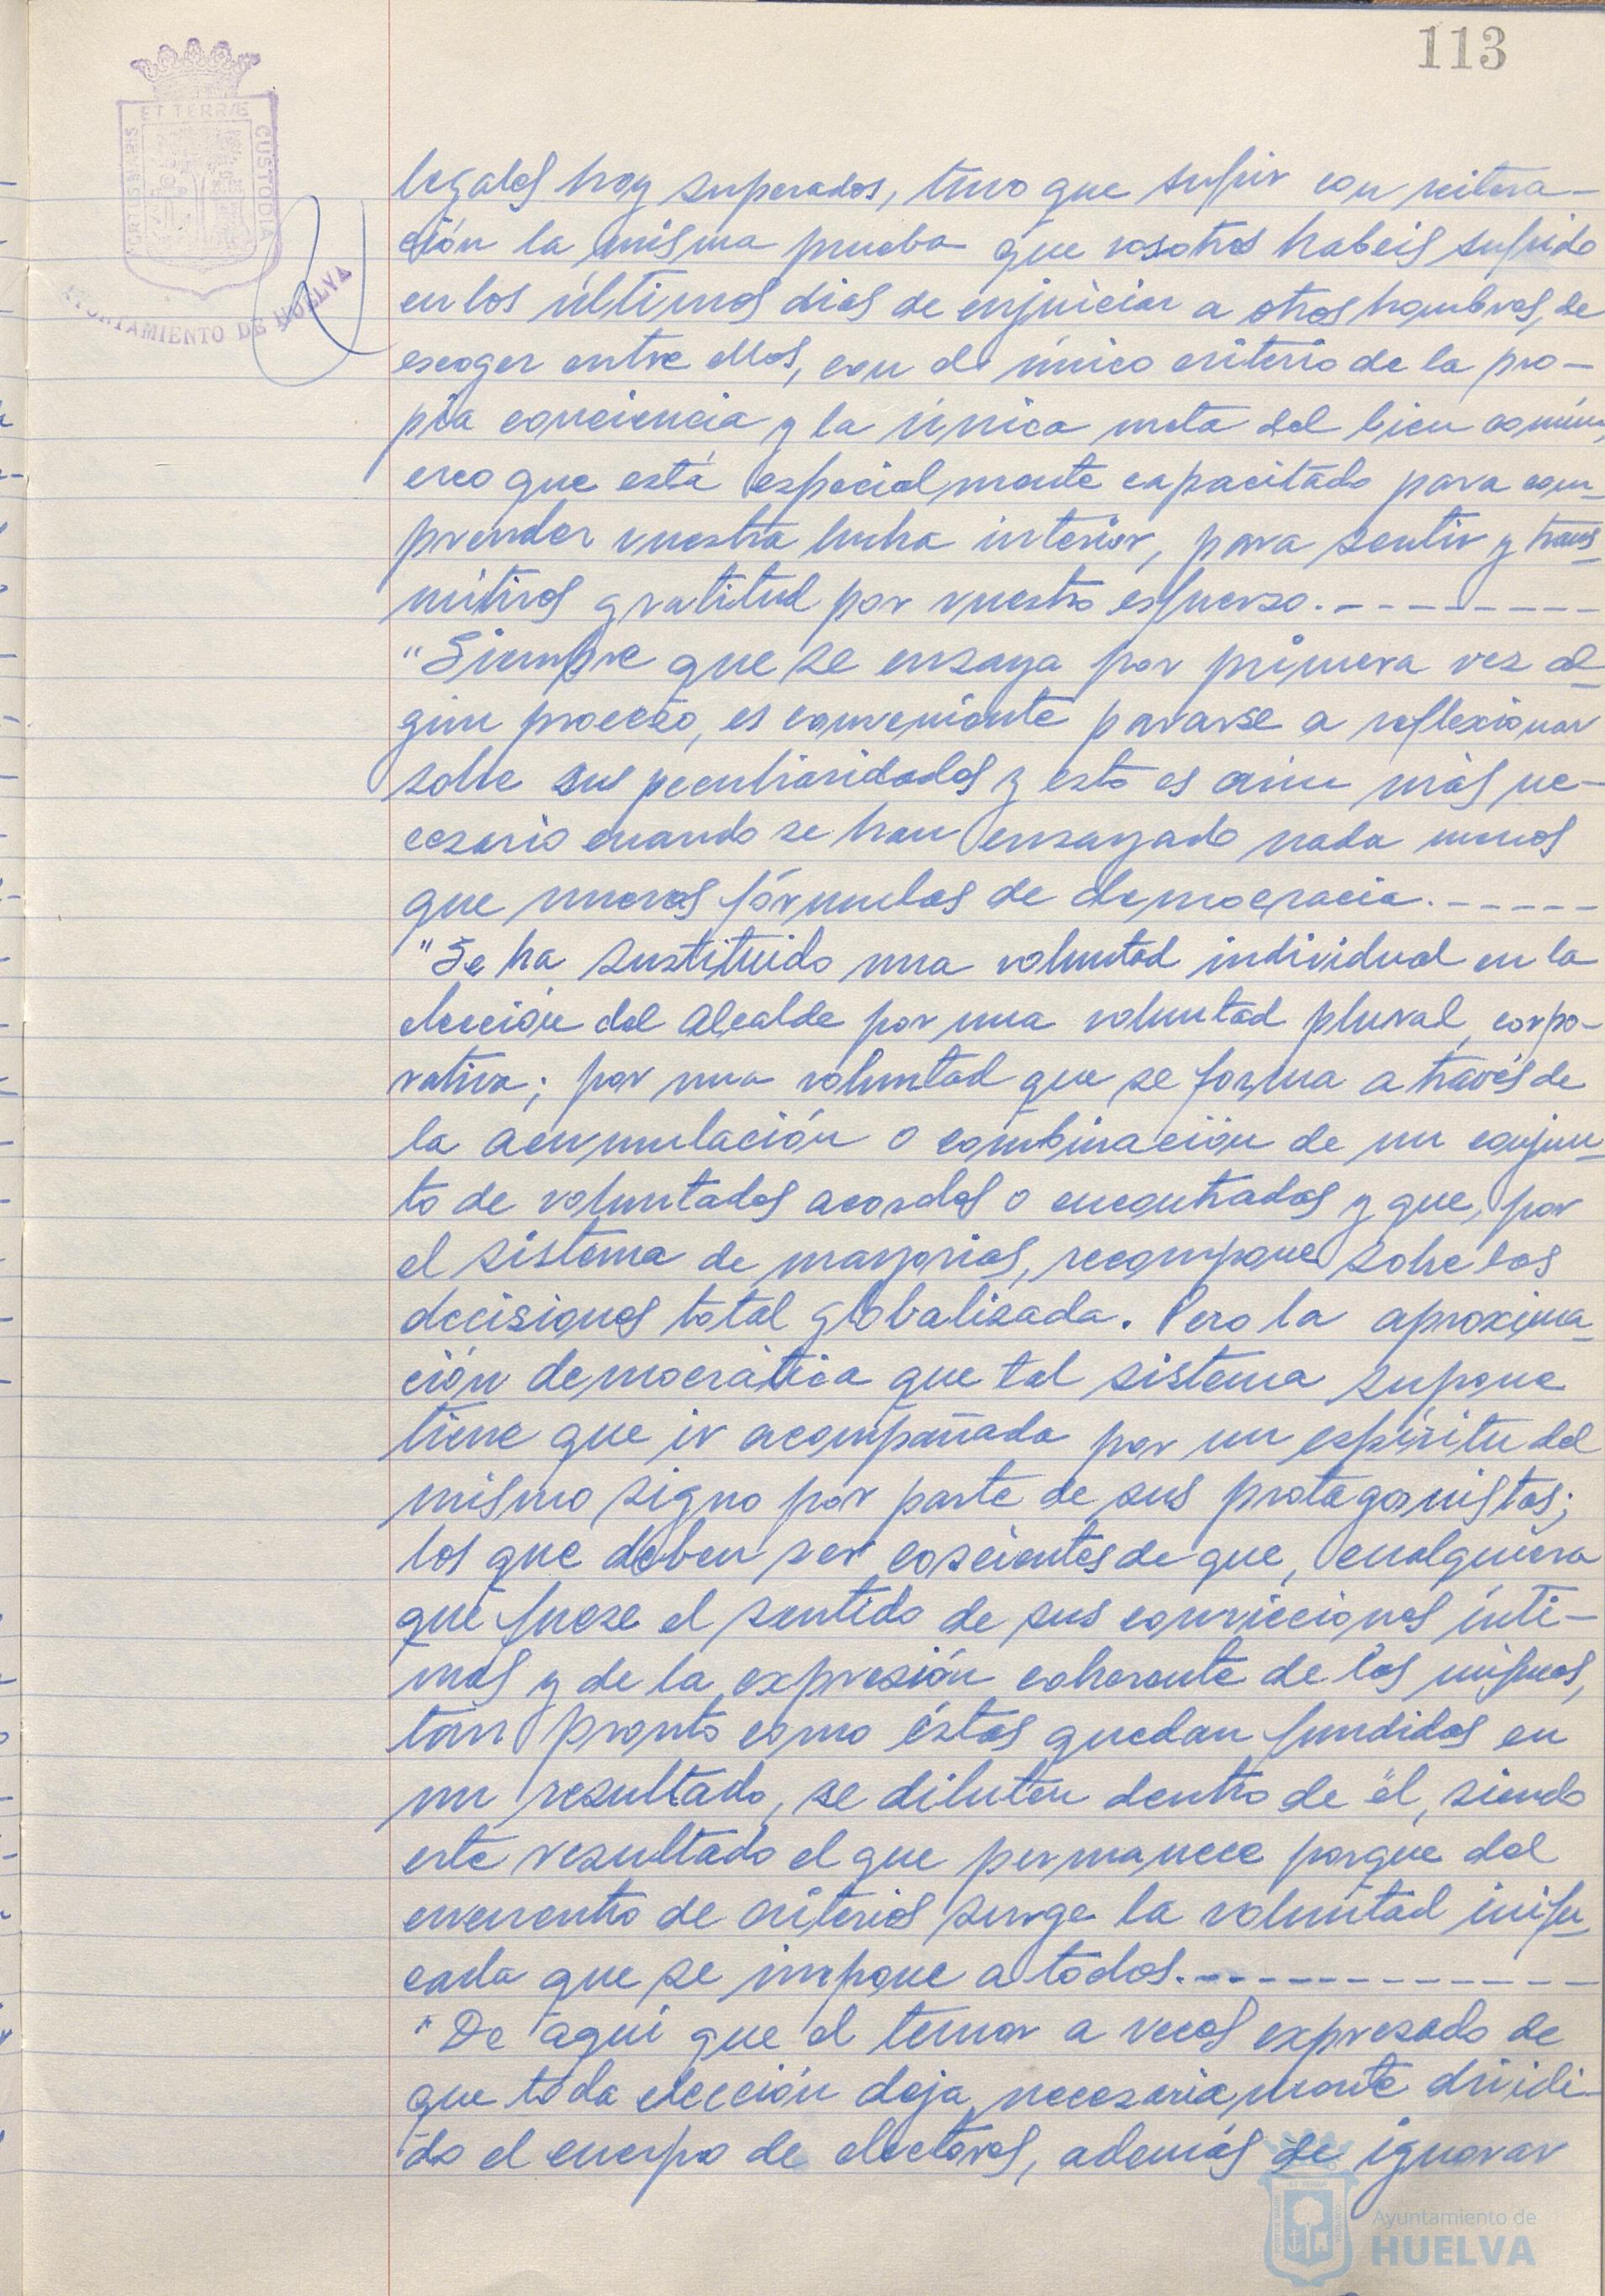 113
PORTUS MARIS ET TERRÆ CUSTODIA
AYUNTAMIENTO DE HUELVA
legales hoy superados, tuvo que sufrir con reitera-
ción la misma prueba que vosotros habeis sufrido
en los últimos dias de enjuiciar a otros hombres, de
escoger entre ellos, con el único criterio de la pro-
pia conciencia y la única meta del bien común,
creo que está especialmente capacitado para com-
prender vuestra lucha interior, para sentir y trans-
mitiros gratitud por vuestro esfuerzo.---------
"Siempre que se ensaya por primera vez al-
gún proceso, es conveniente pararse a reflexionar
sobre sus peculiaridades y esto es aún más ne-
cesario cuando se han ensayado nada menos
que nuevas fórmulas de democracia.-----
"Se ha sustituido una voluntad individual en la
elección del Alcalde por una voluntad plural, corpo-
rativa; por una voluntad que se forma a través de
la acumulación o combinación de un conjun-
to de voluntades acordes o encontradas y que, por
el sistema de mayorias, recompone sobre las
decisiones total globalizada. Pero la aproxima-
ción democrática que tal sistema supone
tiene que ir acompañada por un espíritu del
mismo signo por parte de sus protagonistas;
los que deben ser coscientes de que, cualquiera
que fuese el sentido de sus convicciones ínti-
mas y de la expresión coherente de las mismas,
tan pronto como éstas quedan fundidas en
un resultado, se diluten dentro de él, siendo
este resultado el que permanece porque del
encuentro de criterios surge la voluntad inifi-
cada que se impone a todos.------------
"De aquí que el temor a veces expresado de
que toda elección deja necesariamente dividi-
do el cuerpo de electores, además de ignorar
Ayuntamiento de
HUELVA